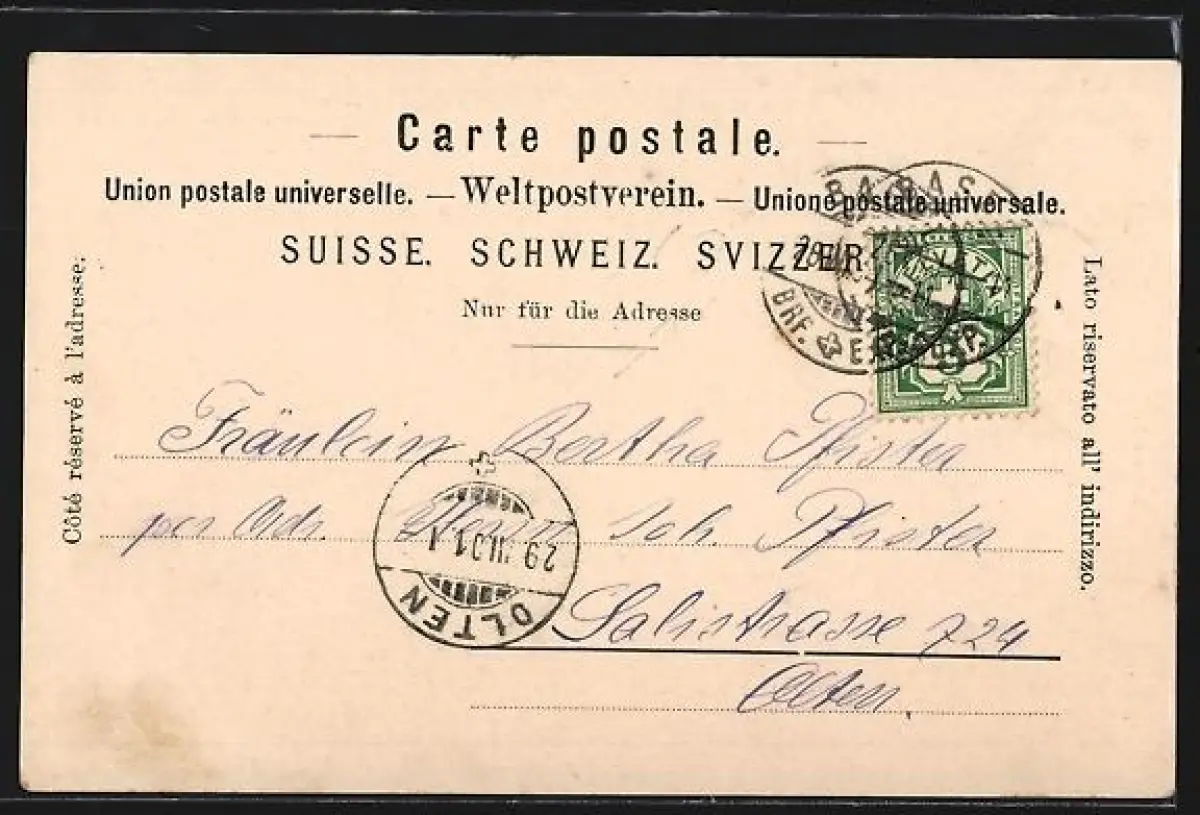 Carte postale.
Union postale universelle. — Weltpostverein. — Unione postale universale.
SUISSE. SCHWEIZ. SVIZZERA
Nur für die Adresse
Côté réservé à l'adresse.
Lato riservato all' indirizzo.
Fräulein Bertha Pfister
per Adr. Herrn Joh. Pfister
Salistrasse 724
Olten
OLTEN
29 III 01
BRF. EXP.
HELVETIA
5